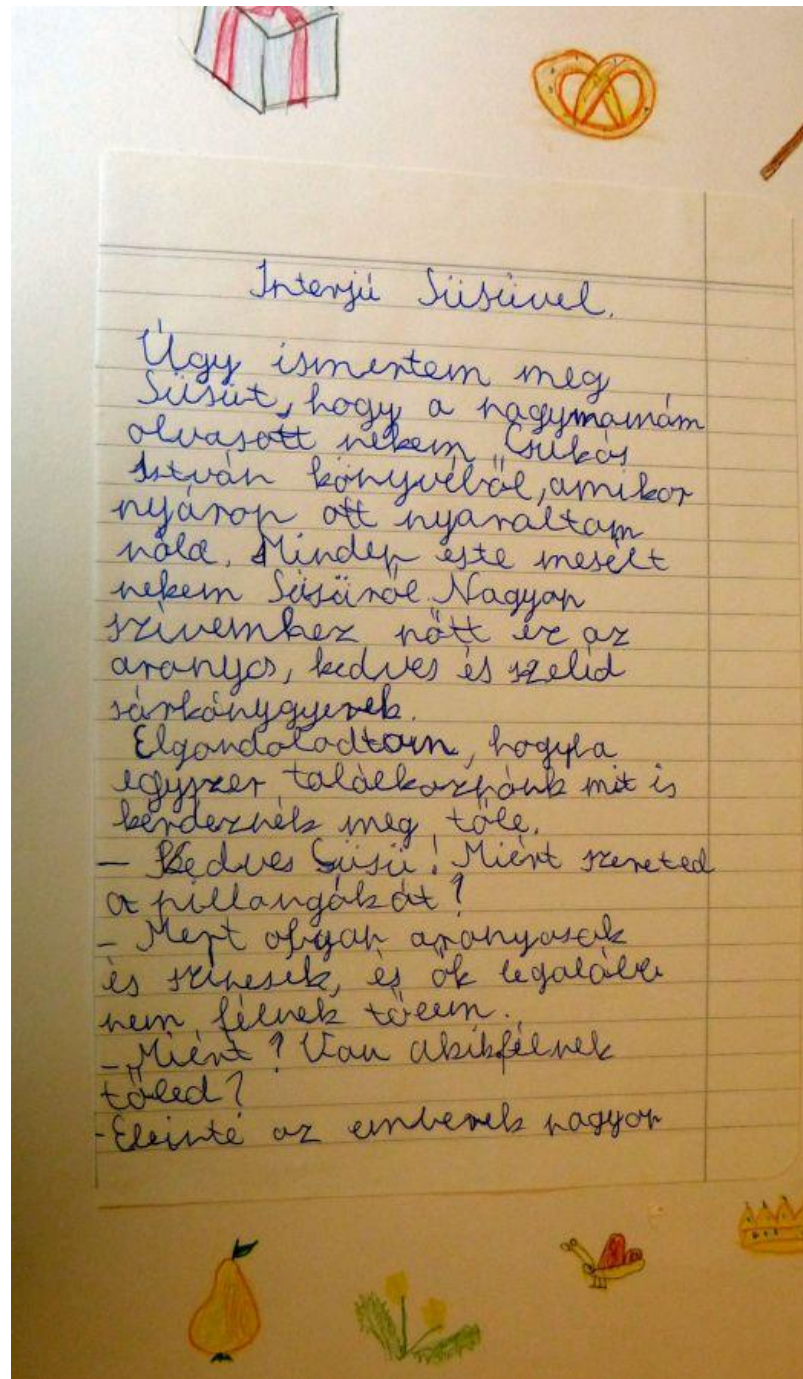 Interjú Süsüvel.
Úgy ismertem meg
Süsüt, hogy a nagymamám
olvasott nekem Csukás
István könyvéből, amikor
nyáron ott nyaraltam
nála. Minden este mesélt
nekem Süsüről. Nagyon
szívemhez nőtt ez az
aranyos, kedves és szelíd
sárkánygyerek.
Elgondolodtam, hogyha
egyszer találkoznánk mit is
kérdeznék meg tőle.
– Kedves Süsü! Miért szereted
a pillangókat?
– Mert olyan aranyosak
és színesek, és ők legalább
nem félnek tőlem.
– Miért? Van akik félnek
tőled?
- Eleinte az emberek nagyon